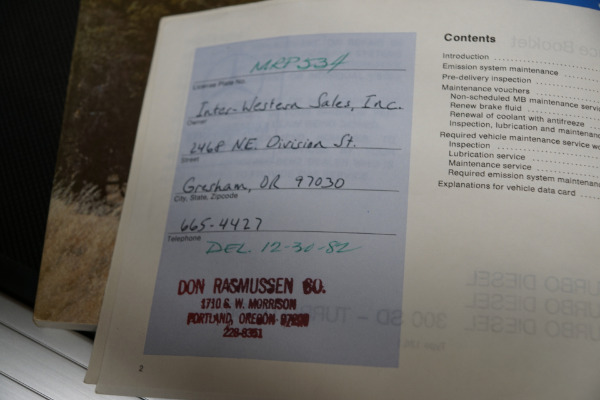 MRP534
License Plate No.
Inter-Western Sales, Inc.
Owner
2468 NE. Division St.
Street
Gresham, OR 97030
City, State, Zipcode
665-4427
Telephone
DEL. 12-30-82
DON RASMUSSEN CO.
1710 S. W. MORRISON
PORTLAND, OREGON
228-8351
2
Contents
Introduction
Emission system maintenance
Pre-delivery inspection
Maintenance vouchers
Non-scheduled MB maintenance
Renew brake fluid
Renewal of coolant with antifreeze
Inspection, lubrication and
Required vehicle maintenance service
Inspection
Lubrication service
Maintenance service
Required emission system
Explanations for vehicle data card